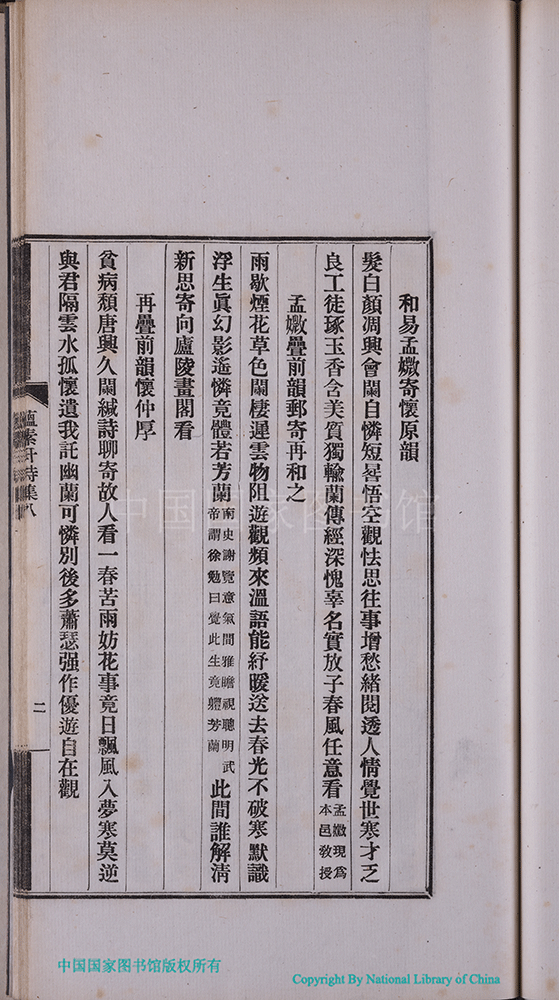 和易孟媺寄懷原韻
髮白顏凋興會闌自憐短晷悟空觀怯思往事增愁緒閱透人情覺世寒才乏
良工徒琢玉香含美質獨輸蘭傳經深愧辜名實放子春風任意看孟媺現爲本邑敎授
孟媺疊前韻郵寄再和之
雨歇煙花草色闌棲遲雲物阻遊觀頻來溫語能紓暖送去春光不破寒默識
浮生眞幻影遙憐竟體若芳蘭南史謝覽意氣閒雅瞻視聰明武帝謂徐勉曰覺此生竟體芳蘭此間誰解淸
新思寄向廬陵畫閣看
再疊前韻懷仲厚
貧病頹唐興久闌緘詩聊寄故人看一春苦雨妨花事竟日飄風入夢寒莫逆
與君隔雲水孤懷遺我託幽蘭可憐別後多蕭瑟强作優遊自在觀
詩集八
二
中国国家图书馆
中国国家图书馆版权所有
Copyright By National Library of China